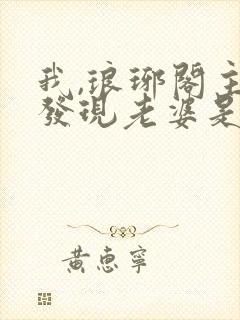 我,琅琊閣主
發現老婆是
黃惠寧